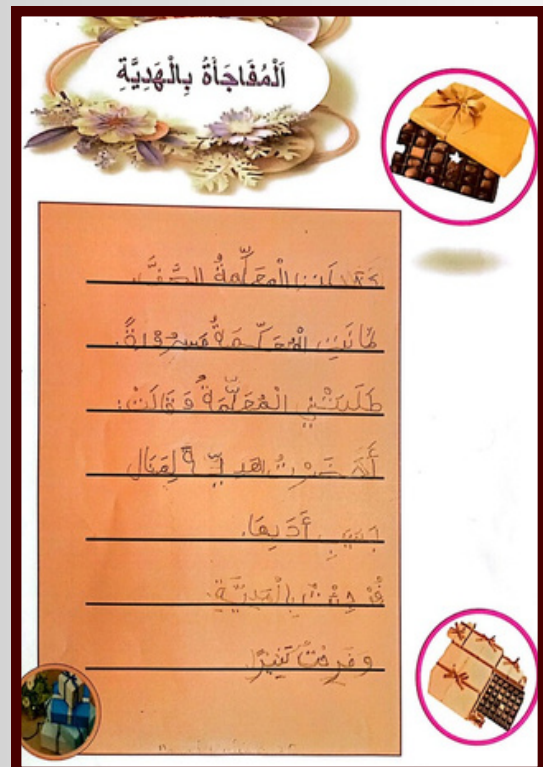 اَلْمُفَاجَأَةُ بِالْهَدِيَّةِ
دَخَلَتِ الْمُعَلِّمَةُ الصَّفَّ،
كَانَتِ الْمُعَلِّمَةُ مَسْرُورَةً.
طَلَبَتْنِي الْمُعَلِّمَةُ وَقَالَتْ:
أَحْضَرْتُ هَدِيَّةً لِمَنَال
بِسَبَبِ أَدَبِهَا.
فُوجِئْتُ بِالْهَدِيَّةِ.
وَفَرِحْتُ كَثِيرًا.